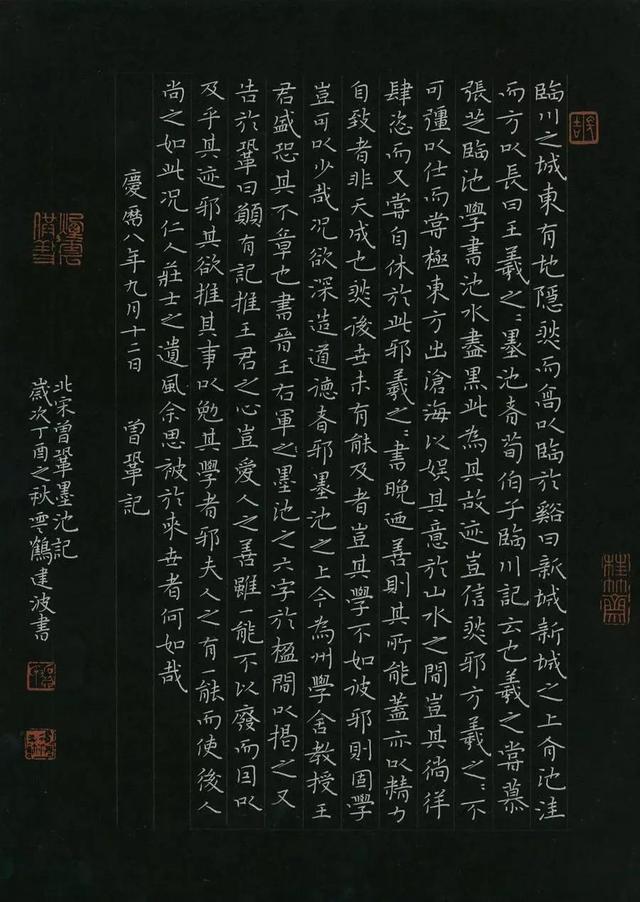 臨川之城東有地隱然而高以臨於谿曰新城新城之上有池洼
而方以長曰王羲之〻墨池者荀伯子臨川記云也羲之嘗慕
張芝臨池學書池水盡黑此為其故迹豈信然邪方羲之〻不
可彊以仕而嘗極東方出滄海以娛其意於山水之間豈其徜徉
肆恣而又嘗自休於此邪羲之〻書晚迺善則其所能蓋亦以精力
自致者非天成也然後世未有能及者豈其學不如彼邪則固學
豈可以少哉况欲深造道德者邪墨池之上今為州學舍教授王
君盛恐其不章也書晉王右軍之墨池之六字於楹間以揭之又
告於鞏曰願有記推王君之心豈愛人之善雖一能不以廢而因以
及乎其迹邪其欲推其事以勉其學者邪夫人之有一能而使後人
尚之如此况仁人莊士之遺風余思被於來世者何如哉
慶曆八年九月十二日 曾鞏記
北宋曾鞏墨池記
歲次丁酉之秋雲鶴建波書